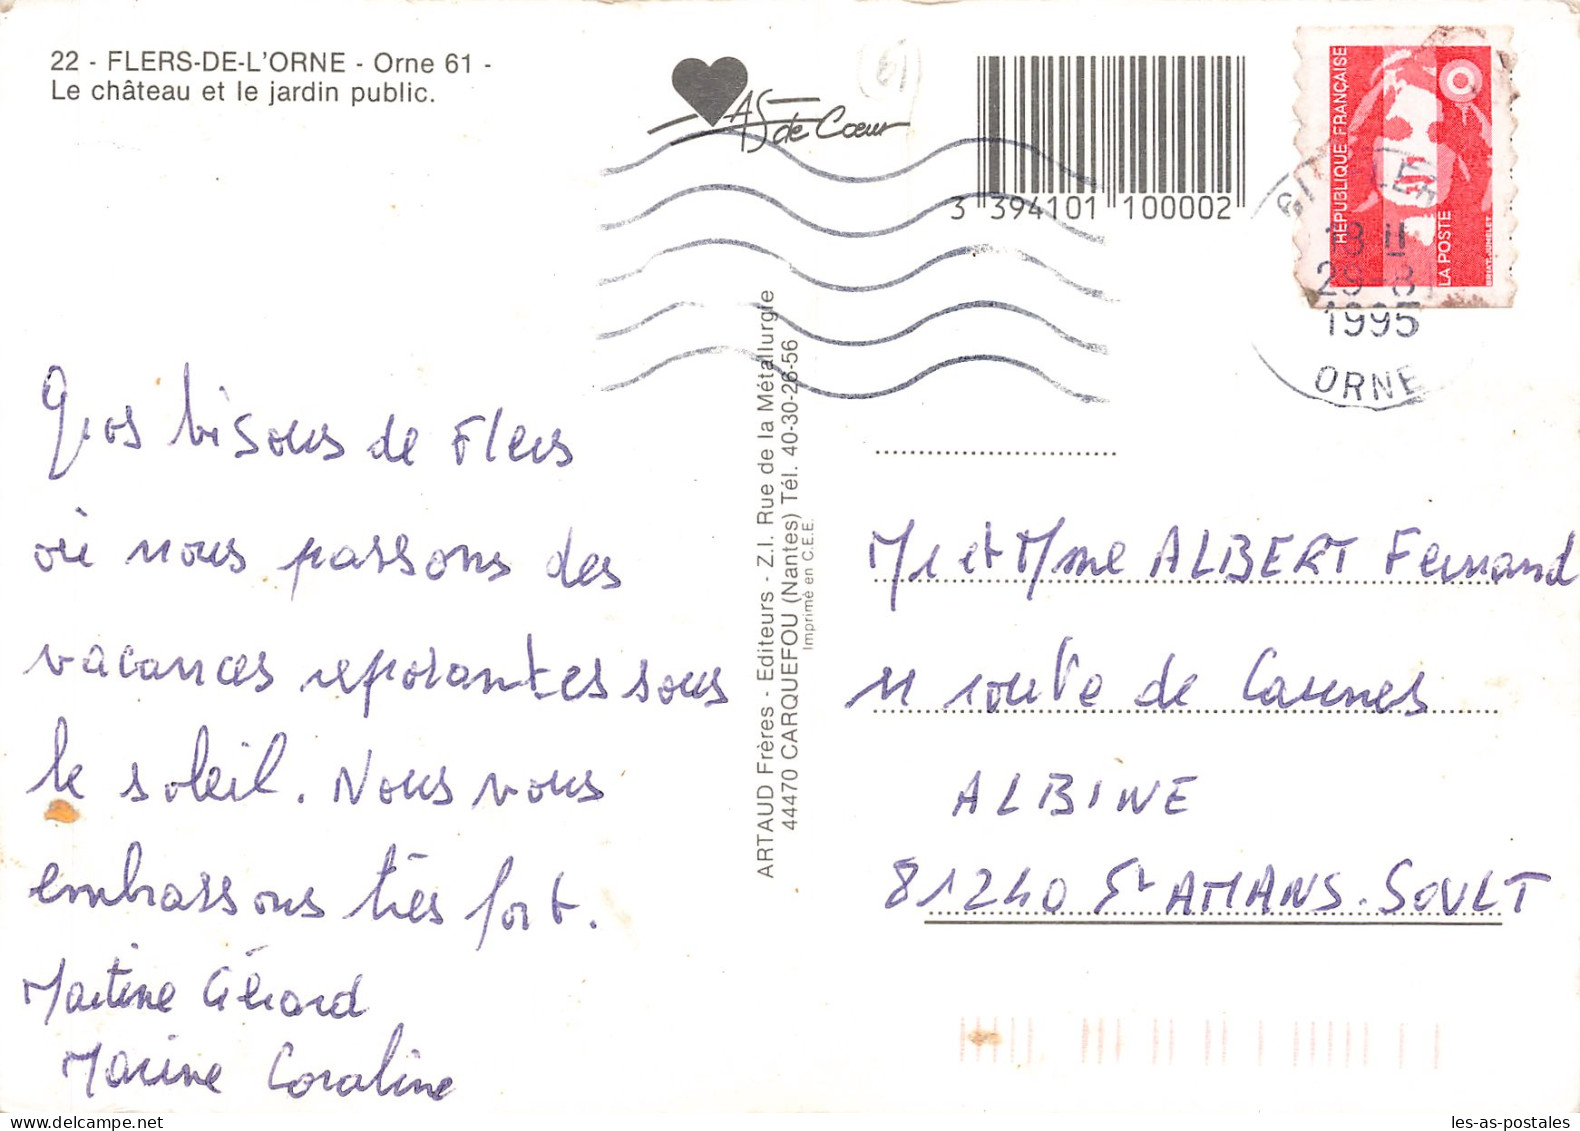 22 - FLERS-DE-L'ORNE - Orne 61 -
Le château et le jardin public.
AS de Cœur
3 394101 100002
RÉPUBLIQUE FRANÇAISE
LA POSTE
18 H
29-8
1995
ORNE
Gros bisous de Flers
où nous passons des
vacances reposantes sous
le soleil. Nous vous
embrassons très fort.
Martine Gérard
Marine Coraline
ARTAUD Frères - Editeurs - Z.I. Rue de la Métallurgie
44470 CARQUEFOU (Nantes) Tél. 40-30-26-56
Imprimé en C.E.E.
Mr et Mme ALBERT Fernand
11 route de Caunes
ALBINE
81240 St AMANS-SOULT
les-as-postales